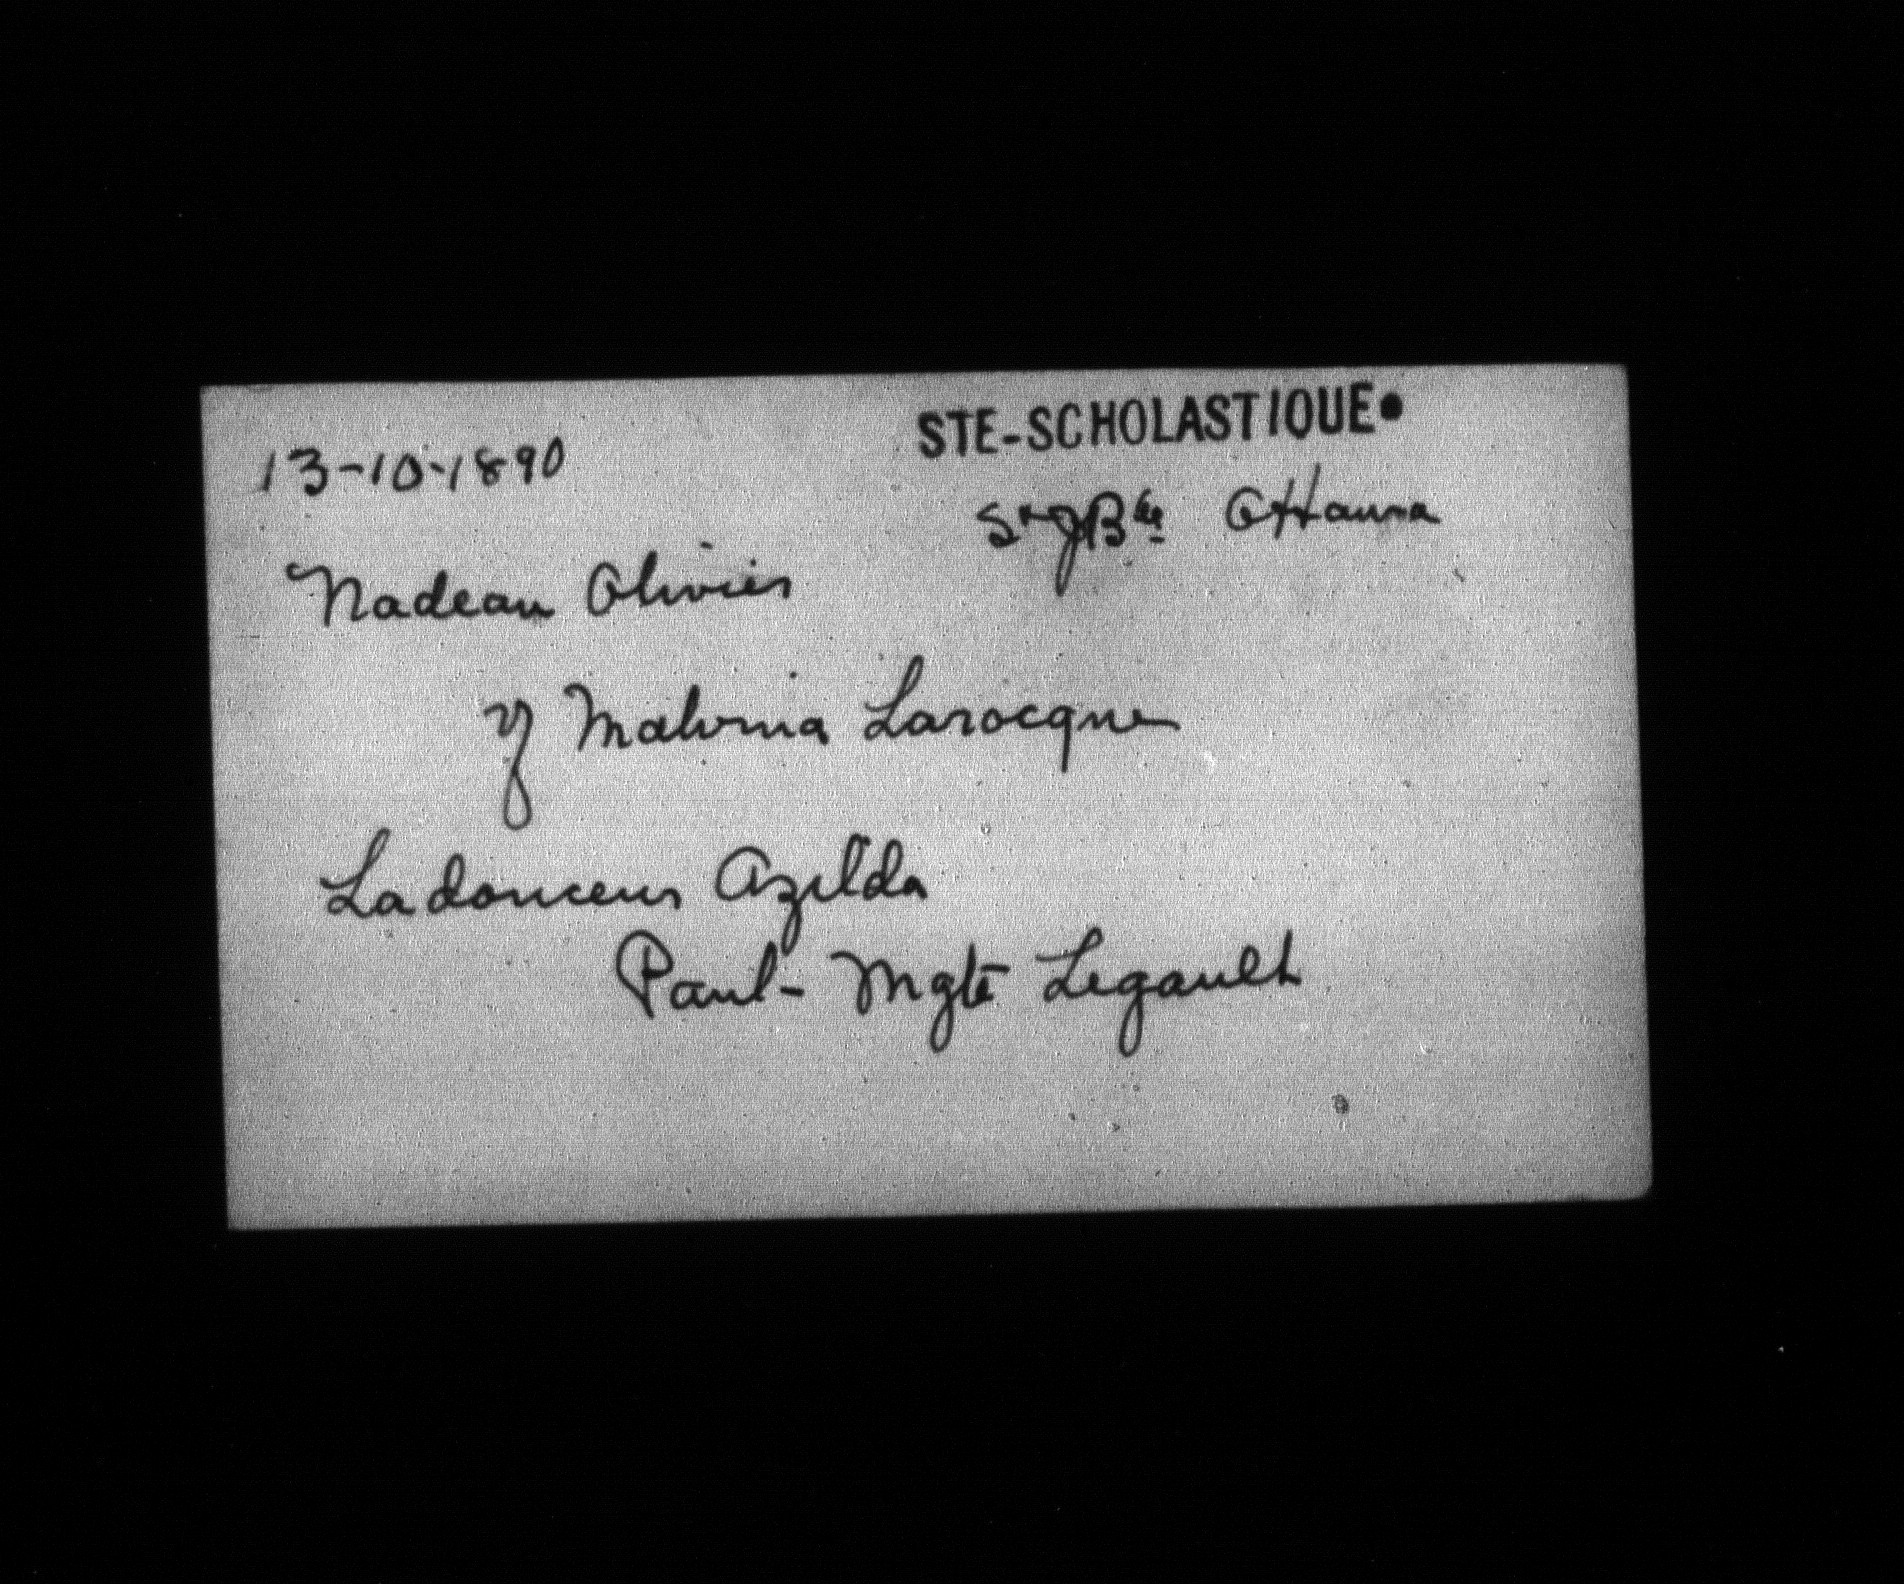 STE-SCHOLASTIQUE.
13-10-1890
St J Bte Ottawa
Nadeau Olivier
vf Malvina Larocque
Ladouceur Azilda
Paul - Mgte Legault